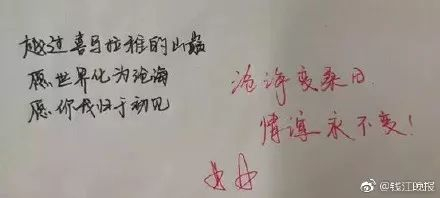 越过喜马拉雅的山巅
愿世界化为沧海
愿你我归于初见
沧海变桑田
情谊永不变!
@钱江晚报